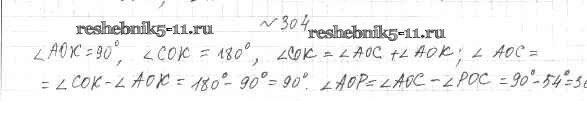 №304
reshebnik5-11.ru reshebnik5-11.ru
∠AOK=90°, ∠COK = 180°, ∠COK = ∠AOC + ∠AOK; ∠AOC =
= ∠COK - ∠AOK = 180° - 90° = 90°. ∠AOP = ∠AOC - ∠POC = 90° - 54° = 3